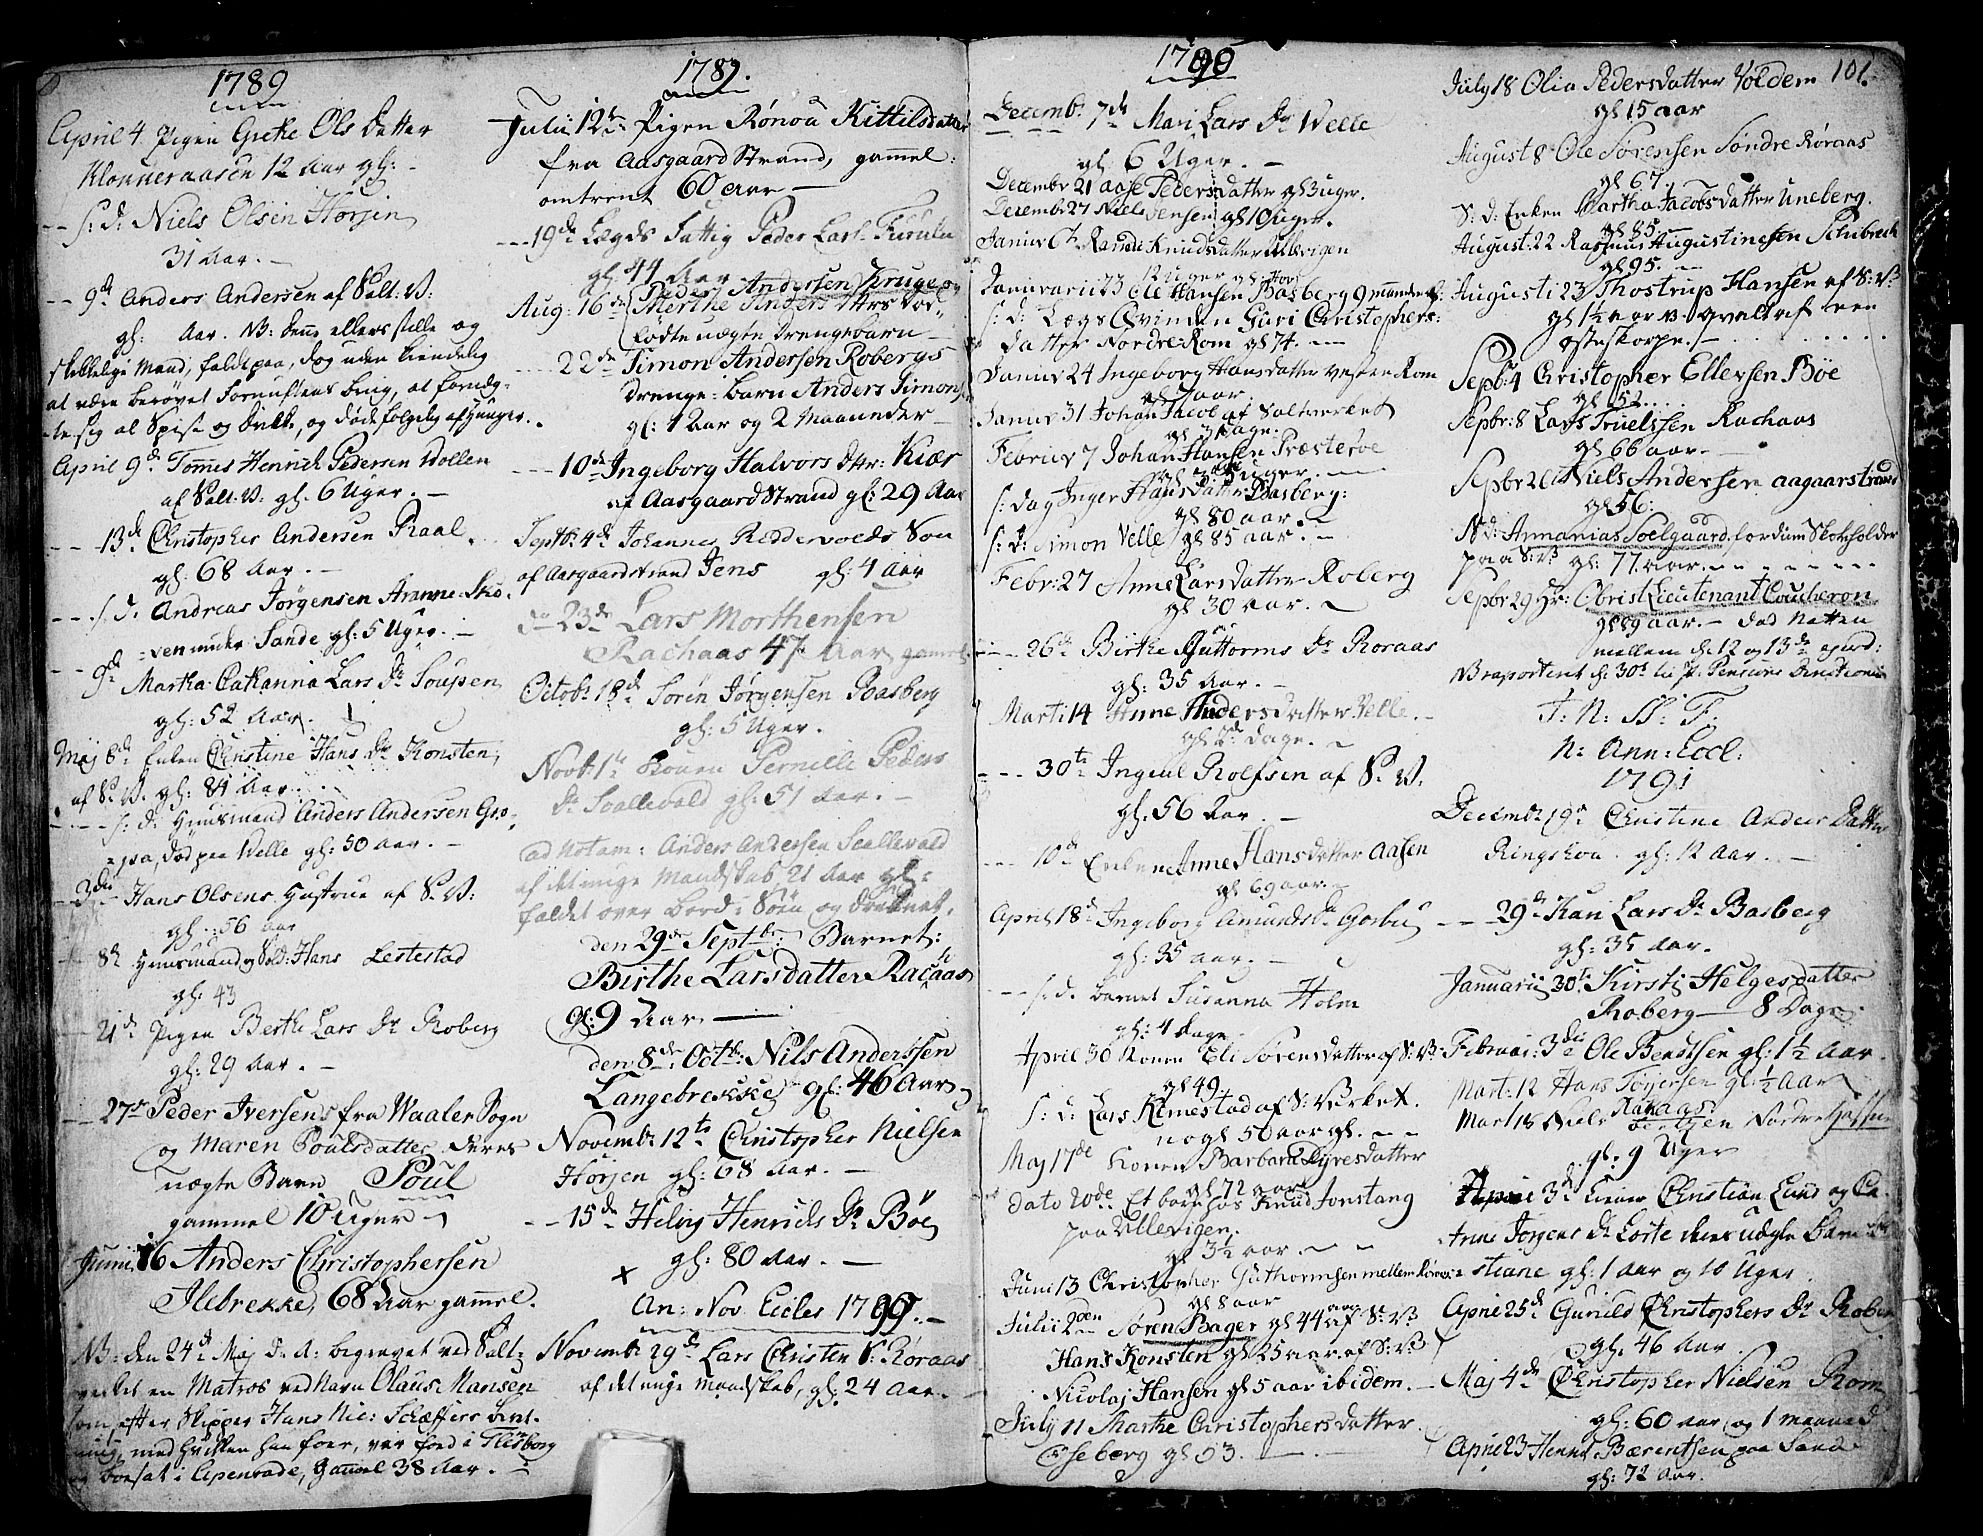 1789
April 4. Pigen Grethe Ols Datter
Klonneraasen 12 Aar gl: -
-- s: d: Niels Olsen Horsin
31 Aar. -
-- 9de Anders Andersen af Salt: V:
gl: Aar. NB: denne ellers stille og
skikkelige Mand, faldt paa, dog uden kiendelig
at være berøvet Fornuftens brug, at fornæg-
te sig al Spise og Drikke, og døde følgelig af Hunger.
April 9de Tomes Henrich Pedersen Wollen
af Salt: V: gl. 6 Uger. -
-- 13de Christopher Andersen Raal.
gl: 68 Aar. -
--- s. d. Andreas Jørgensen Aranne-Sko-
ven under Sande gl: 5 Uger. -
-- 9de Martha Catharina Lars Dr
gl: 52 Aar.
Maj 6de Enken Christine Hans Dr Konsten,
af S: V. gl: 84 Aar.
---- s: d: Huusmand Anders Andersen Gro-
død paa Welle gl: 50 Aar. -
3die Hans Olsens Hustrue af S: V:
gl: 56 Aar
8de Huusmand og Sold: Hans Lestestad
gl. 43
-- 21de Pigen Berthe Lars Dr Roberg
gl: 29 Aar. -
-- 27de Peder Iversens fra Waaler Sogn
og Maren Poulsdatter deres
uægte Barn Poul
gammel 10 Uger
Junii 16 Anders Christophersen
Ilebrekke, 68 Aar gammel.
NB: den 24de Maj d: A: begravet ved Salt-
verket en Matros ved Navn Olaus Hansen
som, efter Skipper Hans Nic: Schæffers beret-
ning, med hvilken han foer, var fød i Flensborg
og boesat i Apenrade, gammel 38 Aar. -
1789.
Julii 12te Pigen Rønou Kittilsdatter
fra Aasgaard Strand, gammel:
omtrent 60 Aar -
--- 19de Lægds Fattig Peder Lars: Furulu
gl: 44 Aar
Aug: 16de Peder Andersen Kruge og
Merthe Anders Dttrs død-
fødte uægte Drengebarn -
---- 22de Simon Andersen Robergs
Drenge-Barn Anders Simons:
gl: 1 Aar og 2 Maaneder -
--- 10de Ingeborg Halvors dttr: Kiær
af Aasgaard Strand gl: 29 Aar
Septb: 4de Johannes Reddervolds Søn
af Aasgaardstrand Jens gl: 4 Aar
do 23de Lars Morthensen
Rachaas 47 Aar gammel
Octob: 18de Søren Jørgensen Basberg
gl: 5 Uger.
Novb: 1te Konen Pernille Peders
Dr Scallevald gl: 51 Aar. -
ad notam: Anders Andersen Scallevald
af det unge Mandskab, 21 Aar gl:
faldet over Bord i Søen og druknet.
den 29de Septbr: Barnet:
Birthe Larsdatter Racaas
gl: 9 Aar -
den 8de Octb: Nils Anderssen
Langebrekke, gl: 46 Aar
Novemb: 12te Christopher Nielsen
Horjen gl: 68 Aar. -
-- 15de Helvig Henrichs Dr Bøe
gl: 80 Aar. -
x
An: Nov. Eccles 1790. -
Novembr 29de Lars Christen S: Røraas
af det unge Mandskab, gl: 24 Aar. -
1790
Decemb: 7de Mari Lars Dr Welle
gl: 6 Uger. -
December 21 Aase Pedersdatter gl 3 uger.
Decemb: 27 Niels Jensen gl 10 uger.
Januar 6te Randi Knudsdatter Ullevigen
12 Uger gl:
Januarii 23 Ole Hansen Basberg 9 maaneder gl:
s: d: Lægs Qvinden Guri Christophers-
datter Nordre Rom gl 74. --
Januar 24 Ingeborg Hansdatter vestre Rom
gl aar.
Januar 31 Johan Jacob af Saltværket
gl 3 Dage.
Februar 7 Johan Hansen Præsterøe
gl uger. --
s: dag Inger Hansdatter Basberg:
gl 80 aar. -
s: d: Simon Velle gl 85 aar. -
Febr: 27 Anne Larsdatter Roberg
gl 30 aar. -
--- 26de Birthe Guttorms Dr Roraas
gl: 35 Aar. -
Marti 14 Anne Andersdatter Velle. -
gl 2 dage. -
--- 30te Ingeul Rolfsen af S: V.
gl. 56 Aar. -
--- 10de Enken Anne Hansdatter Aasen
gl 69 aar. -
April 18de Ingeborg Amunds Dr Gorbu
gl: 35 aar. -
-- s: d. Barnet Susanna Holm
gl: 4 dage
April 30 Konen Eli Sørensdatter af S: V:
gl 49
s: d: Lars Kimestad af S: Verket.
nogl 50 aar gl. - -
Maj 17de Konen Barbara Dyresdatter
gl 72 aar
dato 20de Et barn hos Knud Jonstang
paa Ullevigen.
gl 3½ aar. - -
Juni 13 Christopher Guthormsen mellem Røraas
gl 8 aar
Julii 2den Søren Bager gl 44 aar af S: V:
Hans Konsten gl 25 aar. af S: V:
Nicolaj Hansen gl 5 aar ibidem. -
July 11 Marthe Christophersdatter
Oseberg gl 53. - -
101.
July 18 Olia Pedersdatter Voldem
gl 15 aar
August 8 Ole Sørensen Søndre Røraas
gl 67. -
s: d: Enken Martha Jacobsdatter Uneberg.
gl 85. -
August: 22 Rasmus Augustinesen Schibreck
gl 95. -
Augusti 23 Thostrup Hansen af S: V:
gl 1½ aar NB. qvalt af een
osteskorpe. - . . . . . . .
Sepbr 4 Christopher Ellevsen Bøe
gl 52 . . .
Sepbr: 8 Lars Truelssen Rachaas
gl 66 aar. -
Sepbr 26 Niels Andersen aagaarstrand
gl 56:
s d: Annanias Soelgaard, fordum Skoeholder
paa S: V: gl: 77 aar. - - - - -
Sepbr 29 Hr: Obrist Lieutenant Coucheron
gl 89 aar. - død natten
mellem d: 12 og 13de hujus:
NB raportert d: 30te til Pensions Directionen
I: N: SS: T:
N: Ann: Eccl:
1791
Decembr 19de Christine Anders Datter
Ringshou. gl: 12 Aar. -
-- 29de Kari Lars Dr Basberg
gl: 35 Aar.
Januarii 30te Kirsti Helgesdatter
Roberg - 8 Dage
Februar: 3die Ole Bendtsen gl: 1½ Aar.
Mart: 12 Hans Torgersen gl: ½ Aar
Rakaas.
Mart 18 Niels Bentzen Nordre
gl: 9 Uger
April 3de Christian Lund og
Anne Jorgens Dr Lofte deres uægte Barn
stiane gl: 1 Aar og 10 Uger.
April 25de Gunild Christophers Dr Roberg
gl. 46 Aar
Maj 4de Christopher Nielsen Rom
gl: 60 Aar og 1 Maaned
April 23 Henne Bærentsen paa Sande
gl: 72 Aar.